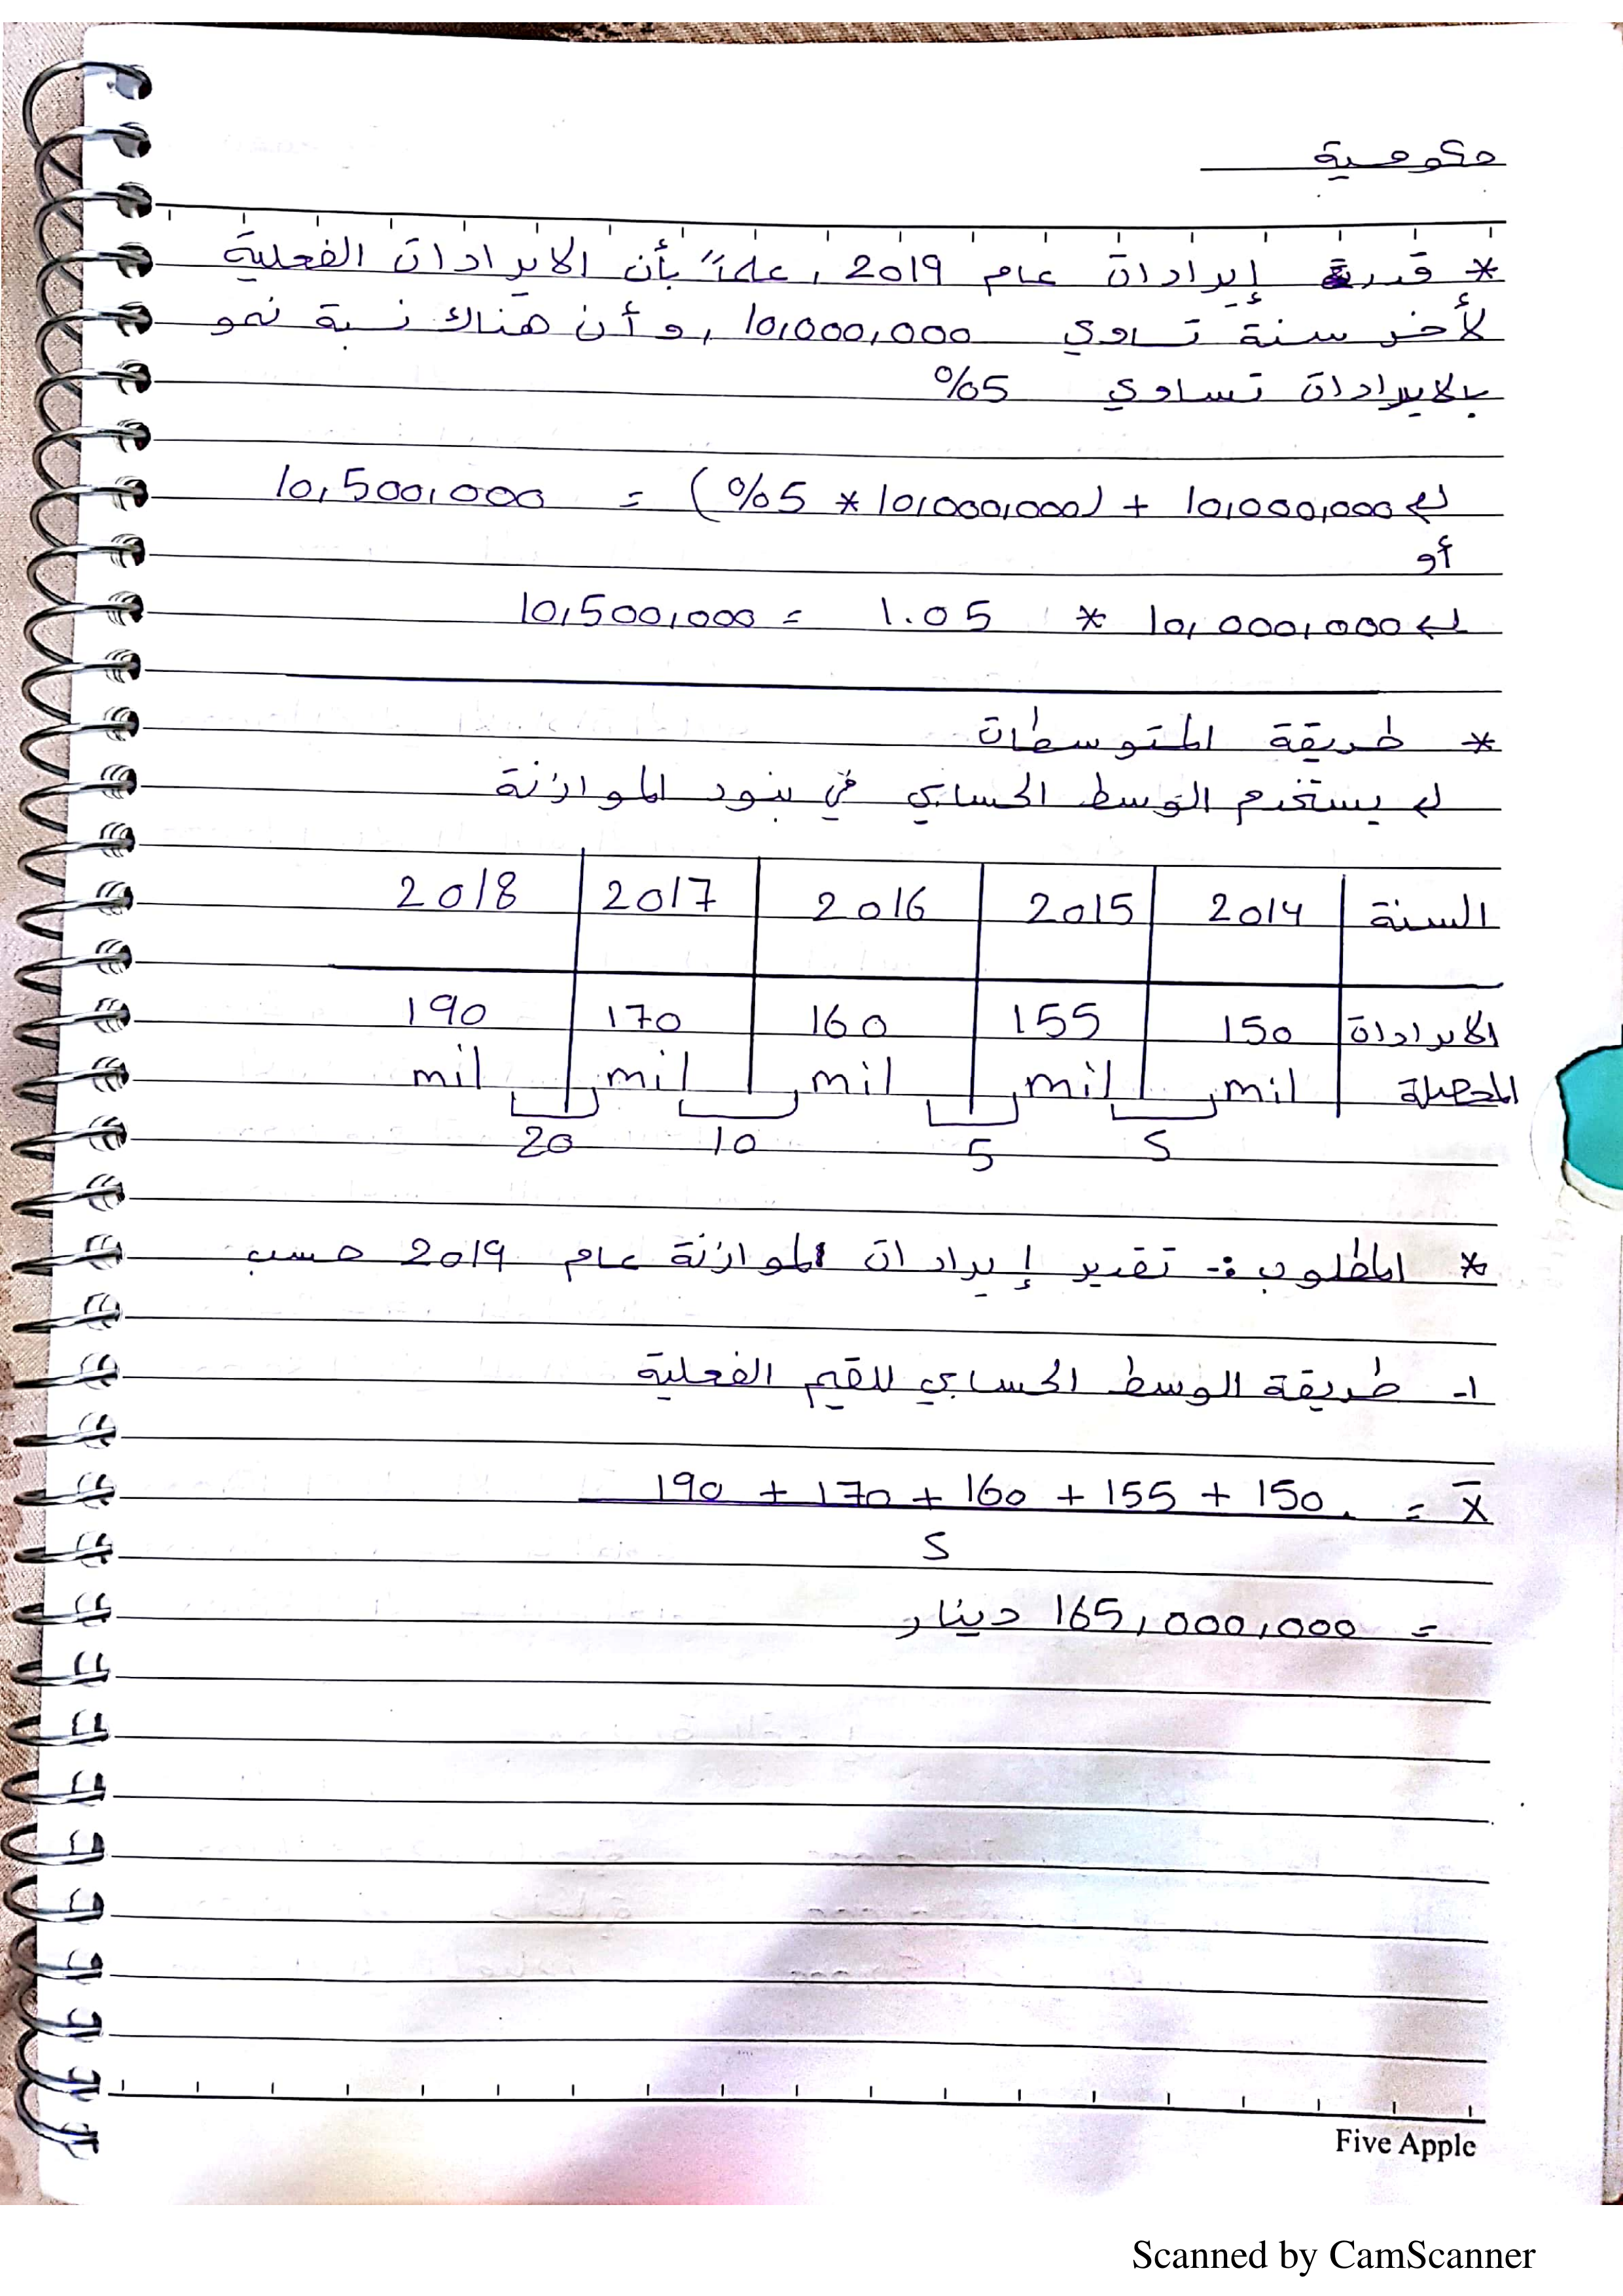 حكومية
* قدرت إيرادات عام 2019 ، علماً بأن الايرادات الفعلية
لأخر سنة تساوي 10,000,000 ، و أن هناك نسبة نمو
بالايرادات تساوي 5%
10,000,000 + (10,000,000 * 5%) = 10,500,000
أو
10,000,000 * 1.05 = 10,500,000
* طريقة المتوسطات
يستخدم الوسط الحسابي في بنود الموازنة
السنة 2014 2015 2016 2017 2018
الايرادات 150 155 160 170 190
المحصلة mil mil mil mil mil
5 5 10 20
* المطلوب :- تقدير إيرادات الموازنة عام 2019 حسب
1- طريقة الوسط الحسابي للقيم الفعلية
X̄ = 150 + 155 + 160 + 170 + 190
5
= 165,000,000 دينار
Five Apple
Scanned by CamScanner